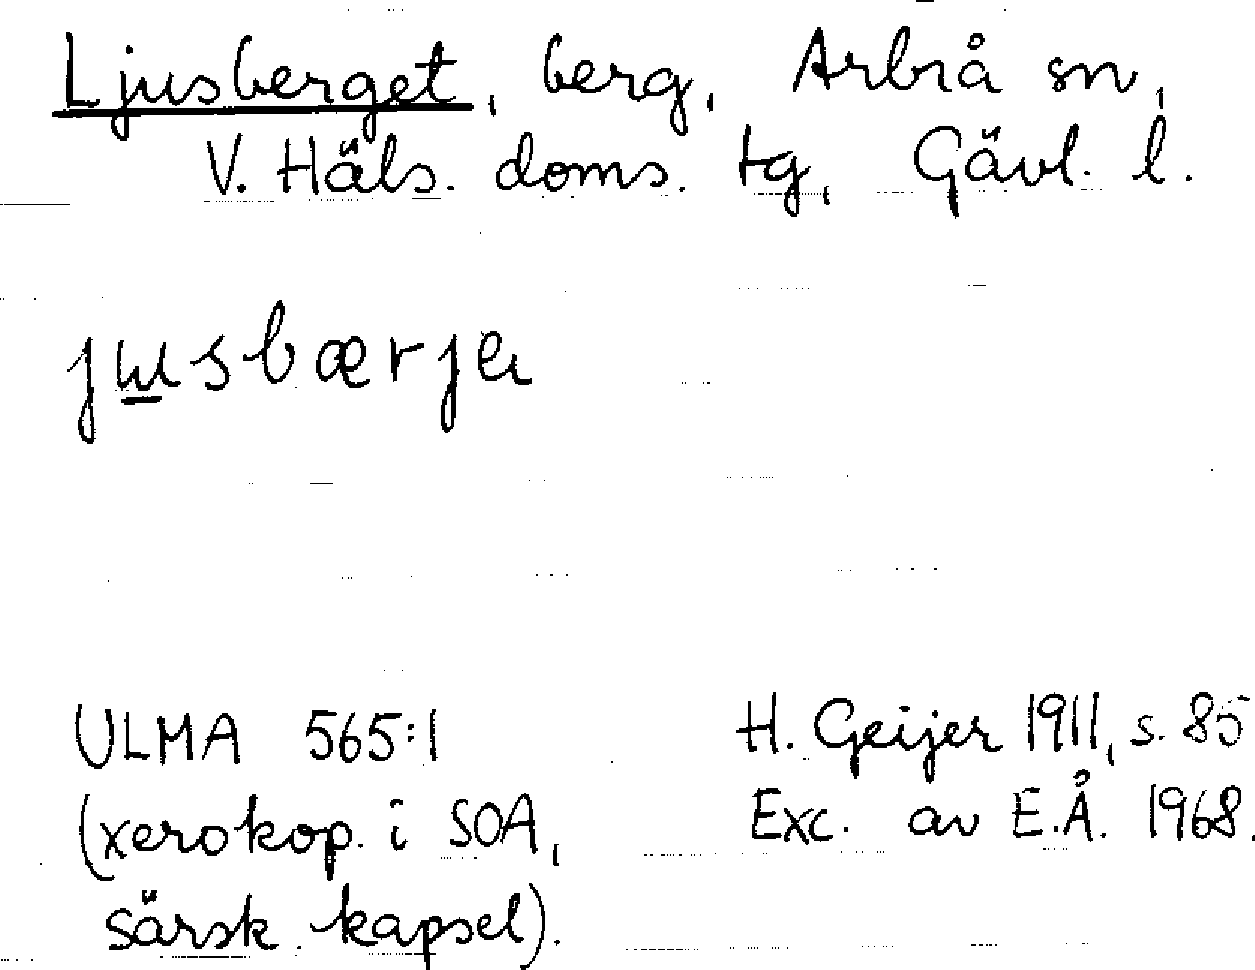 Ljusberget, berg, Arbrå sn,
V. Häls. doms. tg, Gävl. l.
jɯsbærjeɩ
ULMA 565:1
(xerokop. i SOA,
särsk. kapsel).
H. Geijer 1911, s. 85
Exc. av E.Å. 1968.